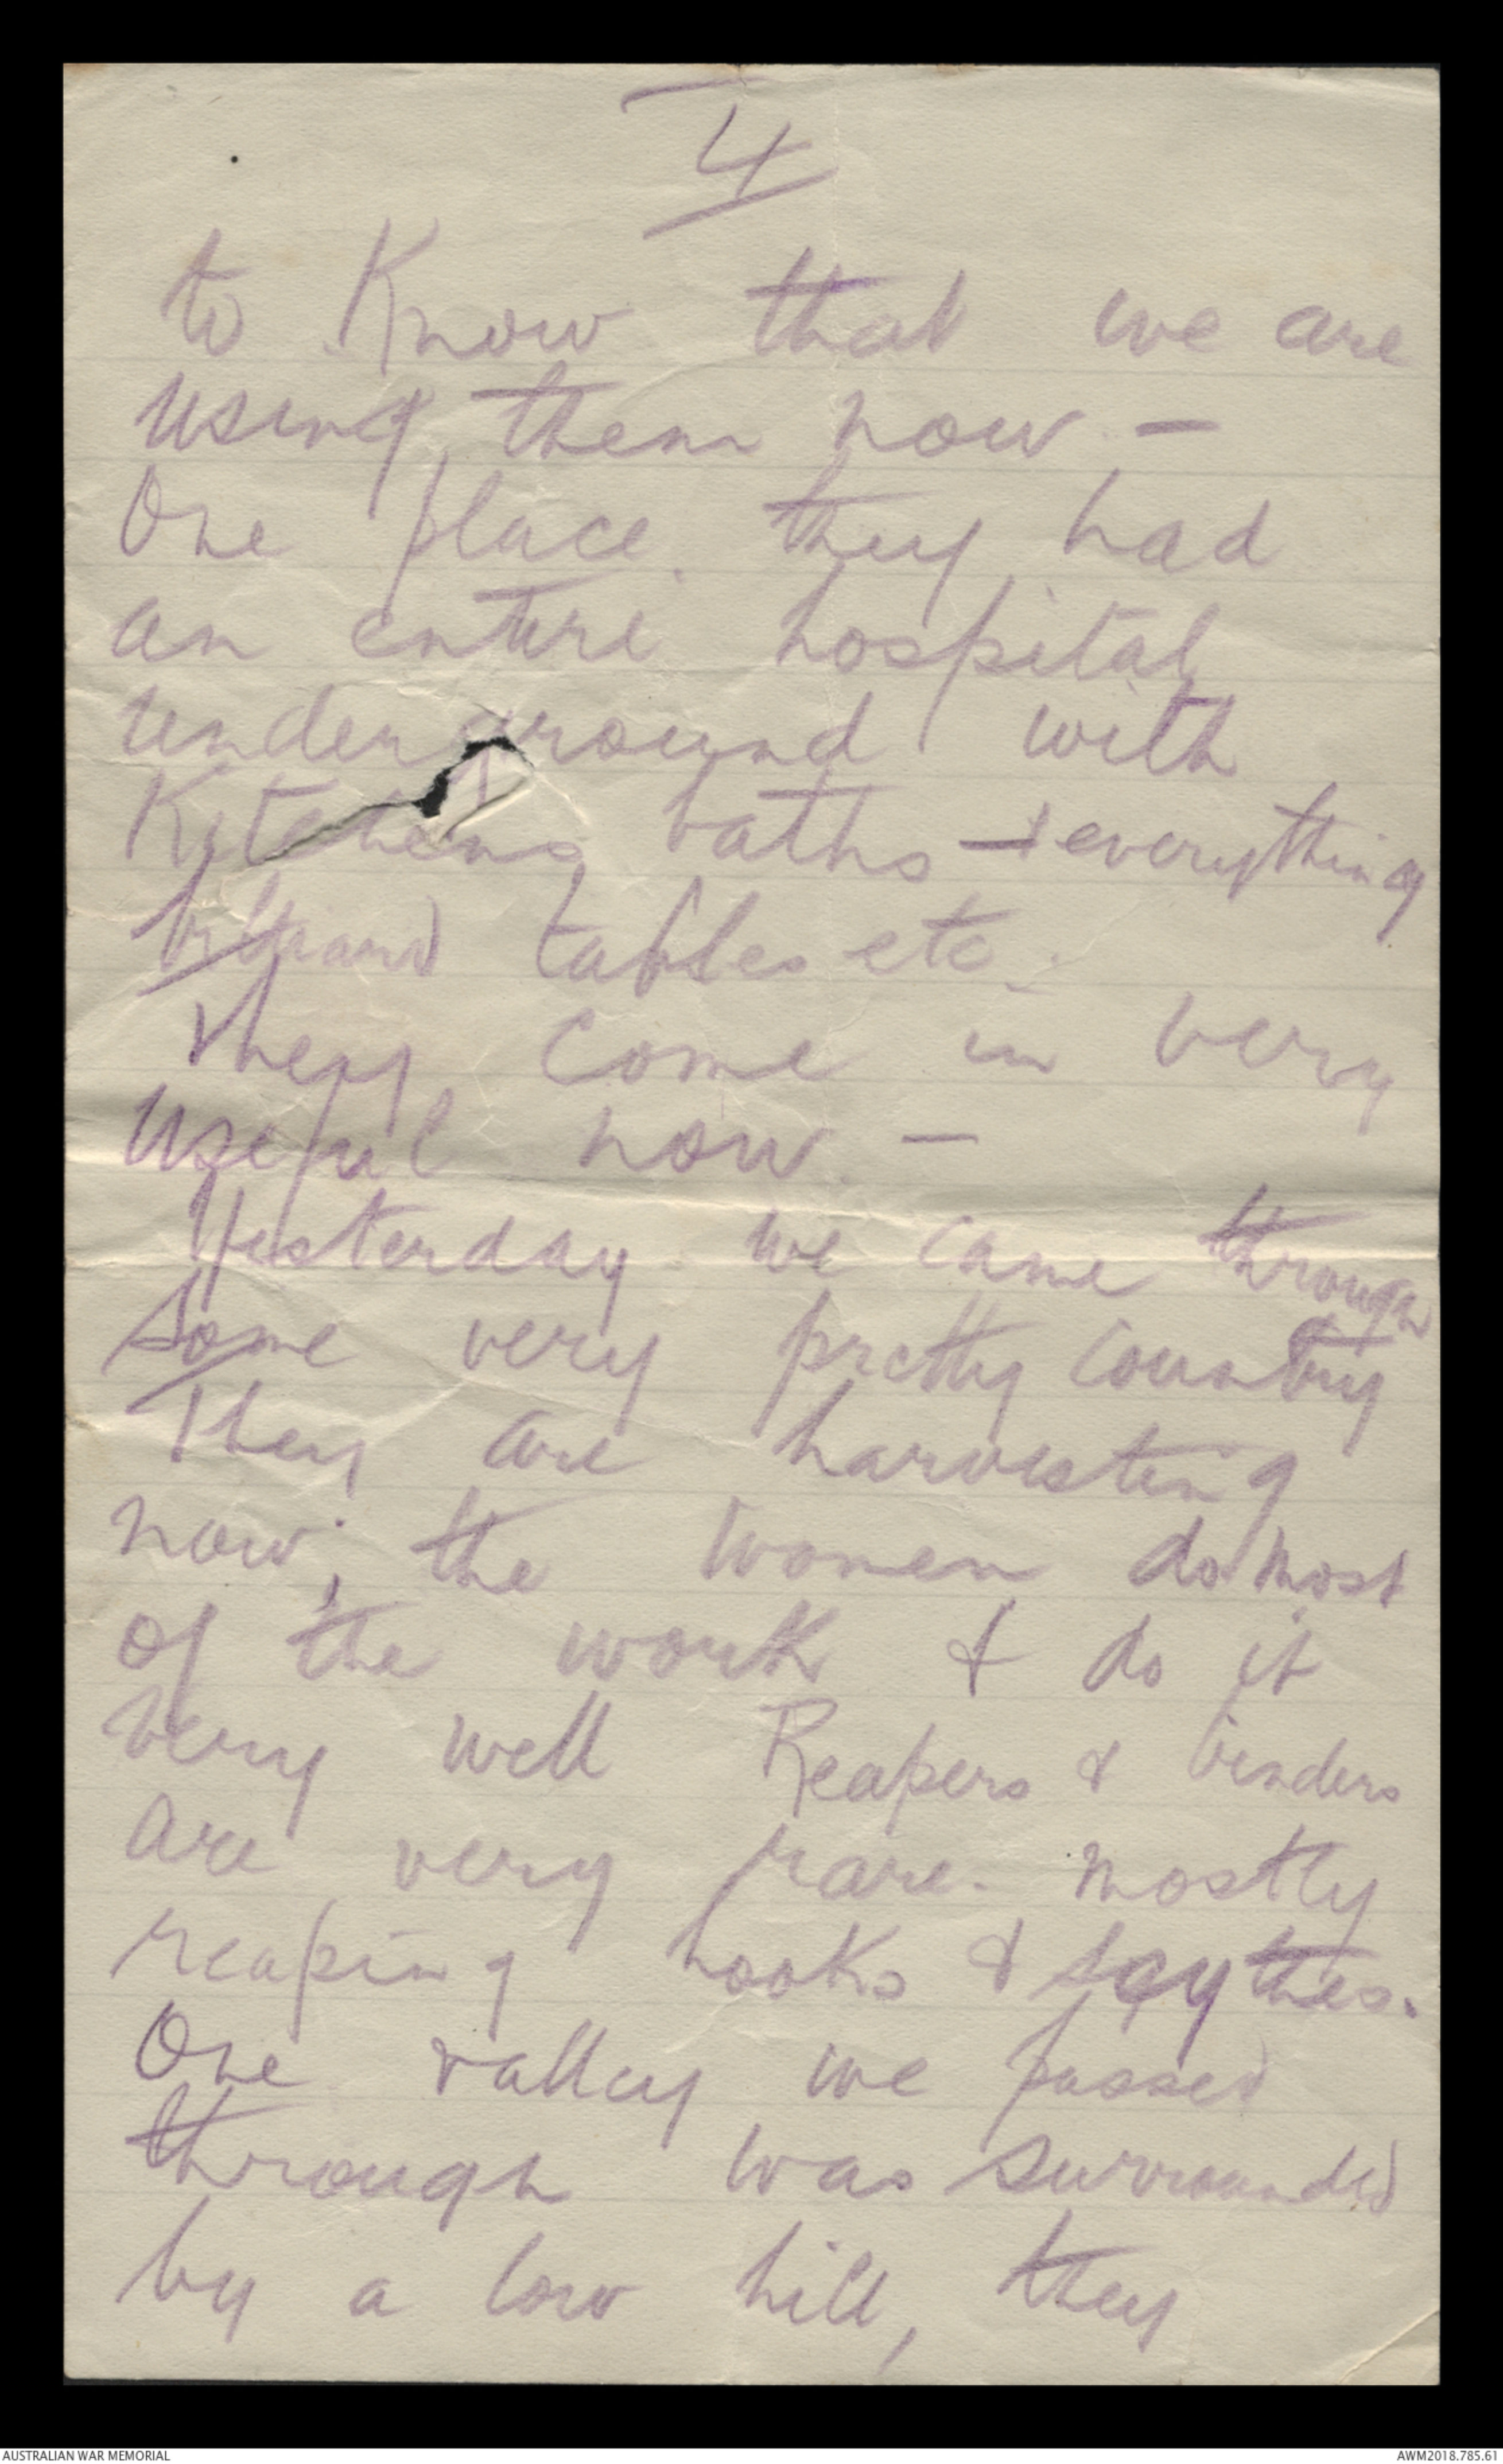 4
to Know that we are
using them now. —
One place they had
an entire hospital
underground with
Kitchens baths & everything
tables etc.
They come in very
useful now. —
Yesterday we came through
some very pretty country
They are harvesting
now, the women do most
of the work & do it
very well Reapers & binders
are very rare. mostly
reaping hooks & scythes.
One valley we passed
through was surrounded
by a low hill, they
AUSTRALIAN WAR MEMORIAL
AWM2018.785.61